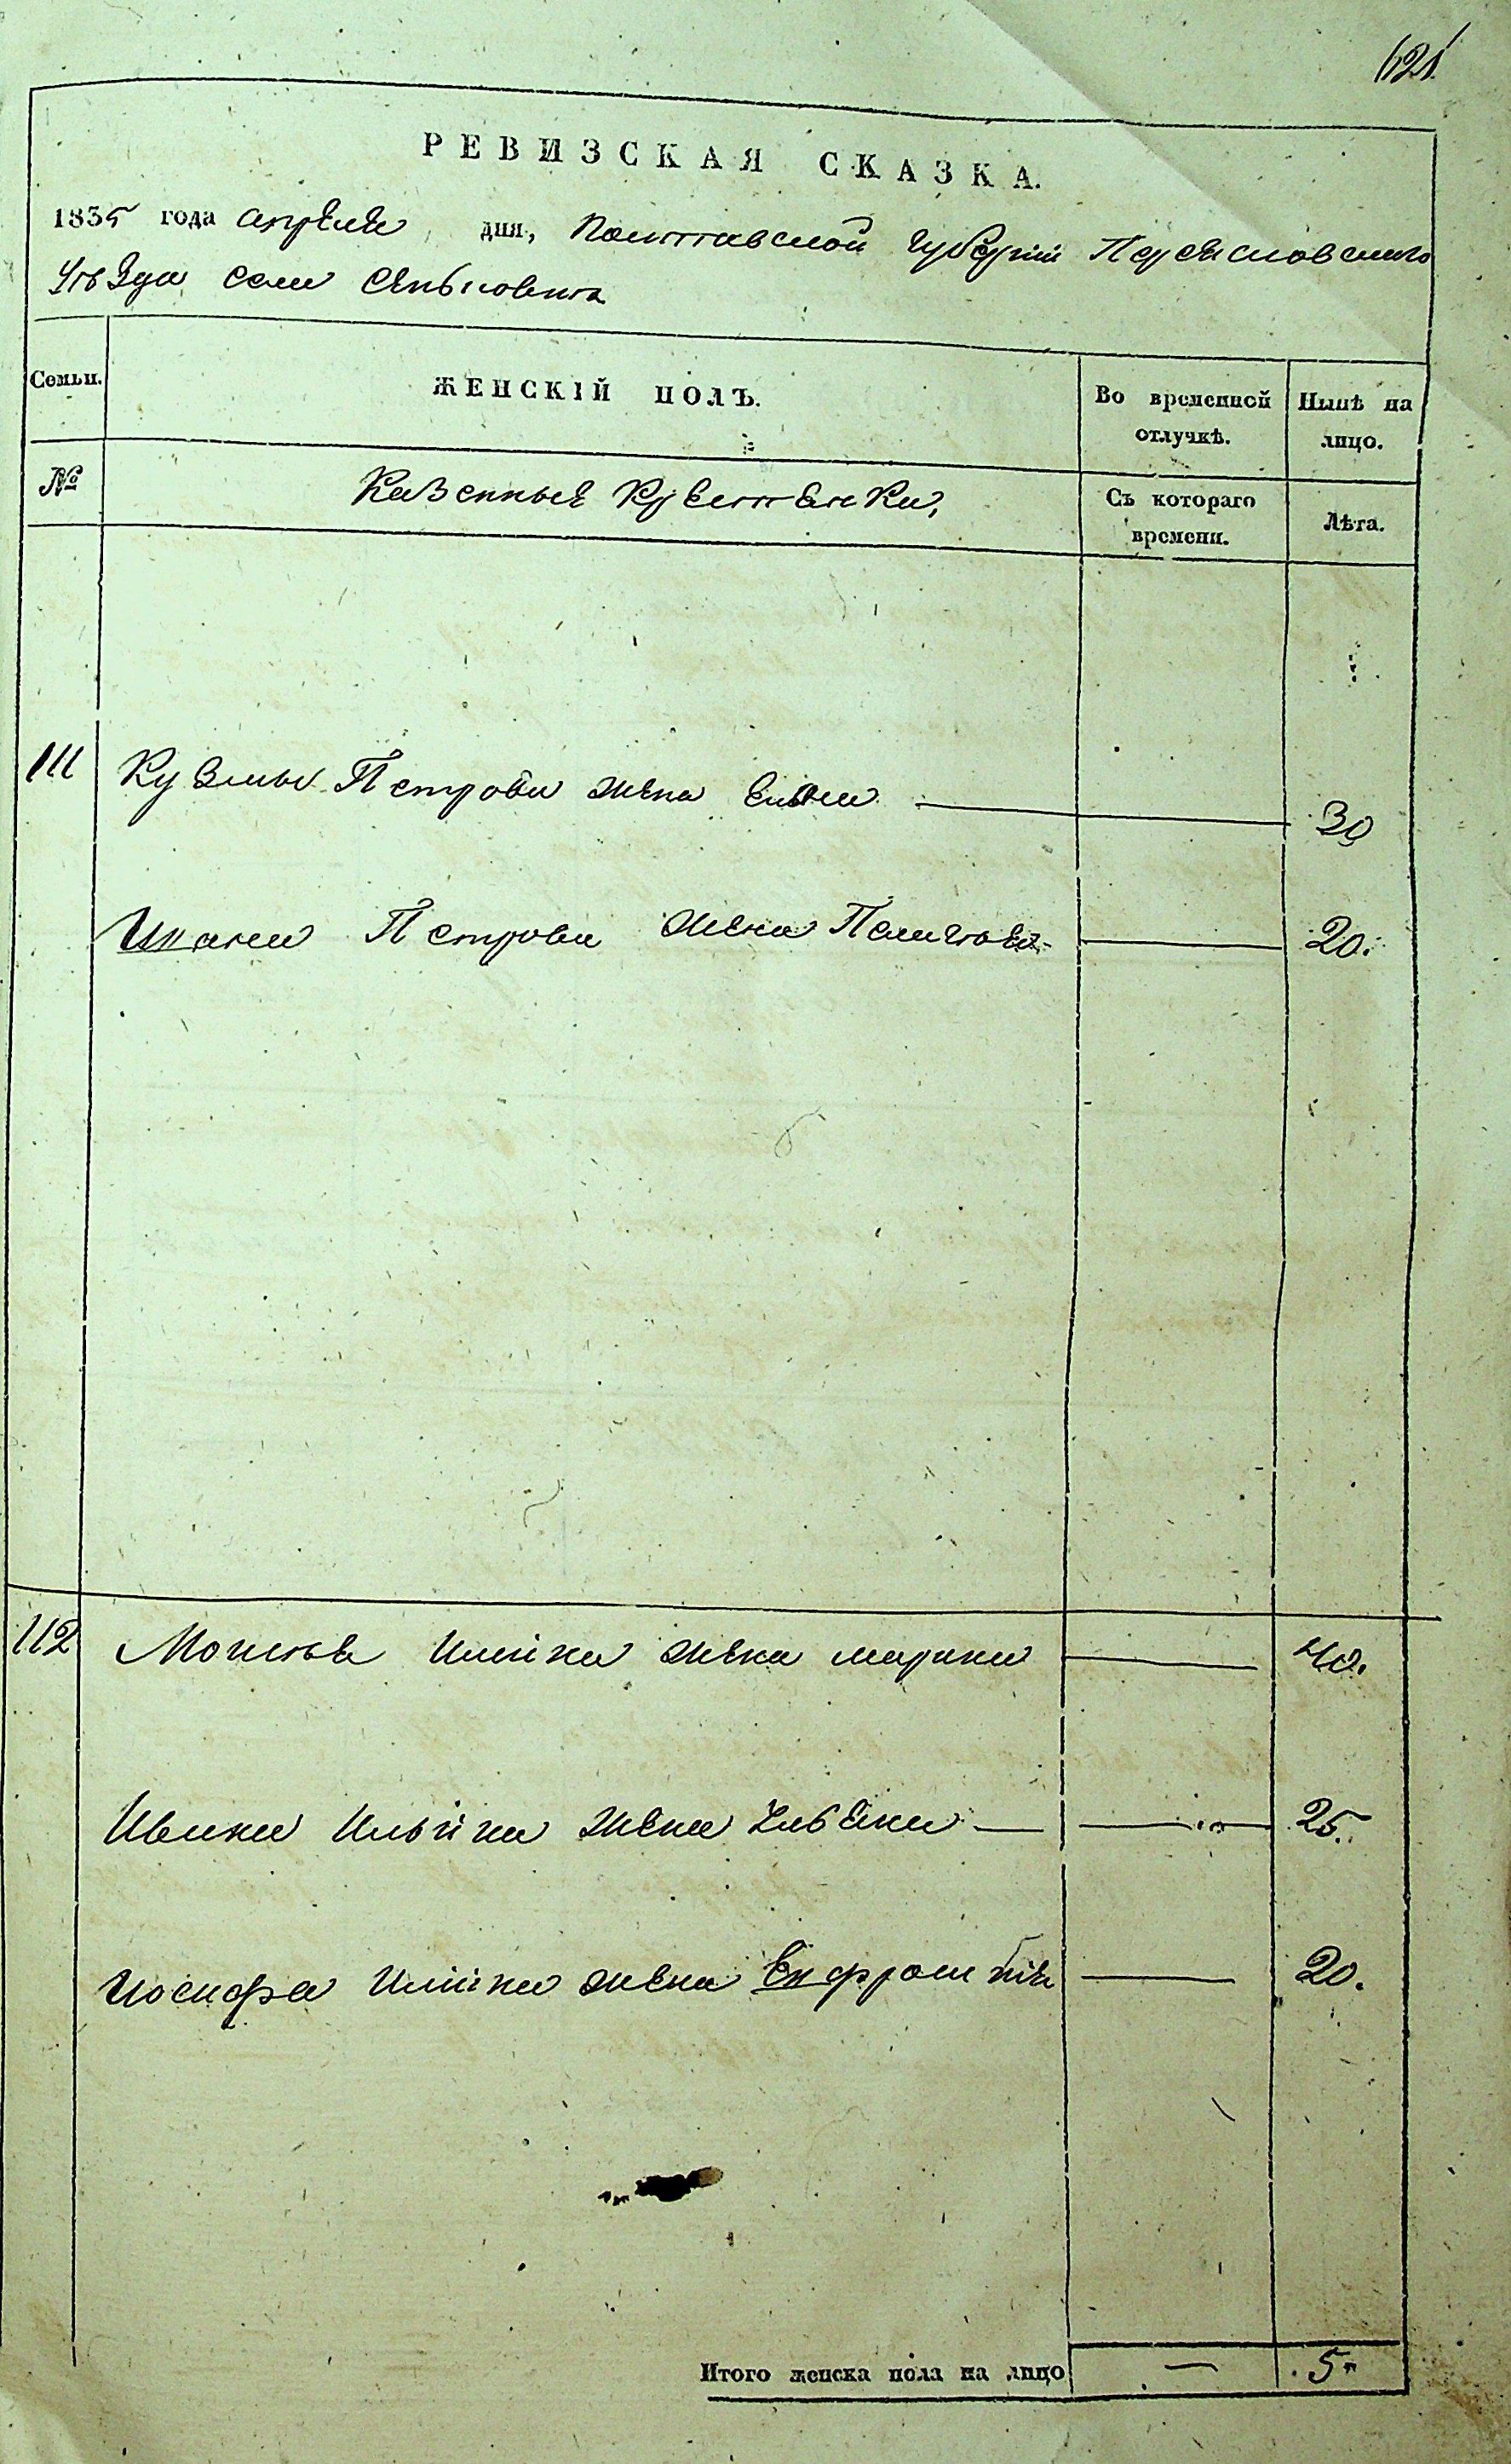 621
РЕВИЗСКАЯ СКАЗКА.
1835 года апреля дня, Полтавской Губернии Переясловского
Уѣзда села
Семьи.
ЖЕНСКІЙ ПОЛЪ.
Во временной отлучкѣ.
Нынѣ на лицо.
№
Казенные Крестьянки,
Съ котораго времени.
Лѣта.
111 Кузмы Петрова жена 30
Петрова жена Пелагея 20.
112 Моисея Илїина жена Марина 40.
Ивана Ильина жена 25.
Иосифа Илїина жена 20.
Итого женска пола на лицо — 5